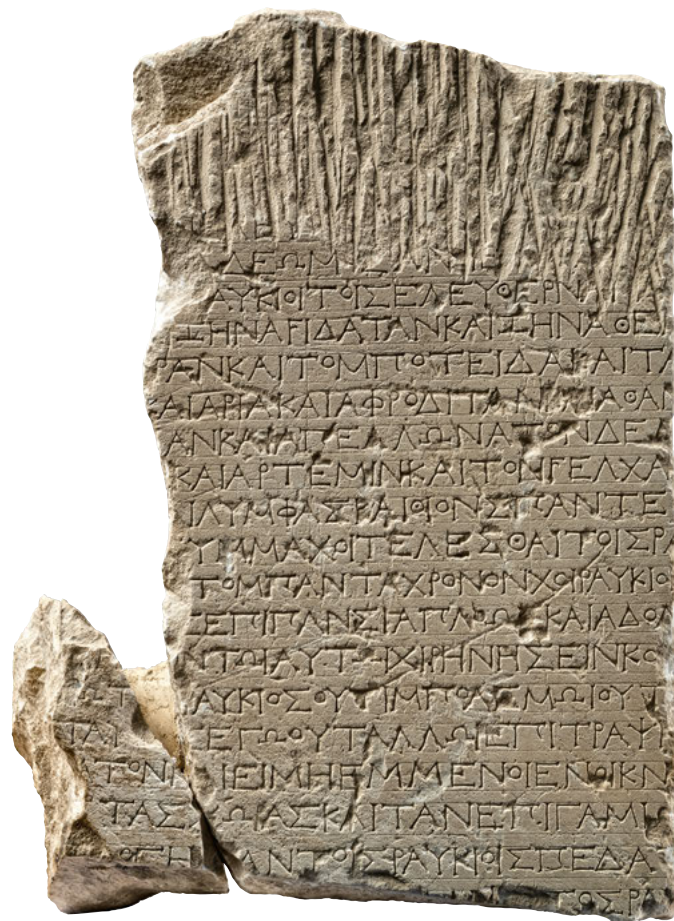 ΔΕΩΜ
ΑΥΚΙΟΙΤΟΙΣΕΛΕΥΘΕΡΝΑ
ΤΗΝΑΓΙΔΑΤΑΝΚΑΙΤΗΝΑΘΕ
ΑΝΚΑΙΤΟΜΠΟΤΕΙΔΑΚΑΙΤΑ
ΚΑΙΑΡΙΑΚΑΙΑΦΡΟΔΙΤΑΝΚΑΙΑΘΑΝ
ΑΝΚΑΙΑΠΕΛΛΩΝΑΤΟΝΔΕ
ΚΑΙΑΡΤΕΜΙΝΚΑΙΤΟΝΓΕΛΧΑ
ΙΛΥΜΦΑΣΡΑΙΟΙΟΝΣΠΑΝΤΕ
ΥΜΜΑΧΟΙΤΕΛΕΣΘΑΙΤΟΙΣΡΑ
ΤΟΜΠΑΝΤΑΧΡΟΝΟΝΧΟΙΡΑΥΚΙΟ
ΕΠΙΠΑΝΣΙΑΠΛΟΩΣΚΑΙΑΔΟΛ
ΝΤΩΙΑΥΤΩΙΧΙΡΗΝΗΣΕΙΝΚΟ
ΑΥΚΙΟΣΟΥΤΙΜΠΟΛΕΜΩΙΟΥ
ΤΑΙ ΕΓΩΟΥΤΑΛΛΩΙΕΠΙΤΡΑΨ
ΤΟΝ ΙΕΙΜΗΕΜΜΕΝΟΙΕΝΟΙΚΝ
ΤΑΣ ΩΙΑΣΚΑΙΤΑΝΕΠΙΓΑΜΙ
ΑΝΤΟΙΣΡΑΥΚΙΟΙΣΠΕΔΑ
ΤΟΣΡΑ